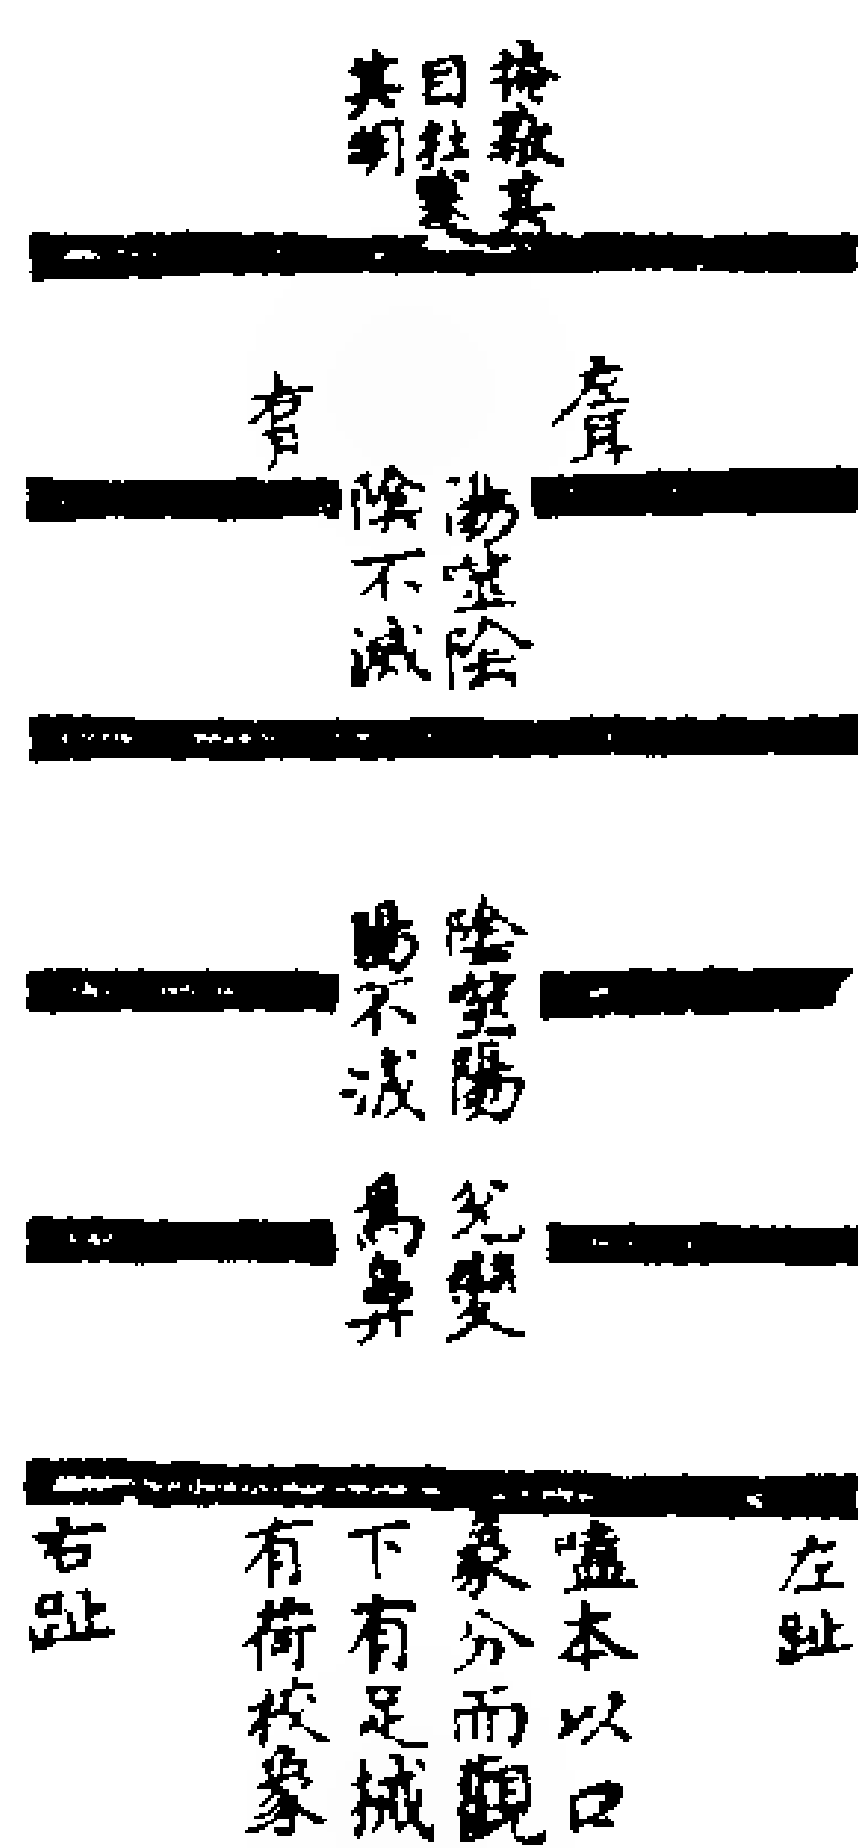 掩蔽其
目杜塞
其明
左耳
右耳
陽筮陰
陰不滅
陰筮陽
陽不滅
爲鼻
左趾
嗑本以口
象分而觀
下有足械
有荷校象
右趾